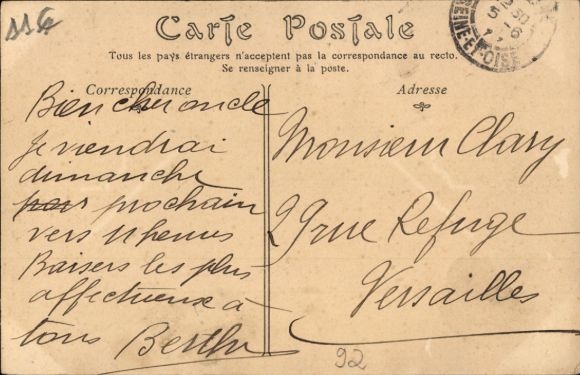 116
Carte Postale
Tous les pays étrangers n'acceptent pas la correspondance au recto.
Se renseigner à la poste.
Correspondance
Bien cher oncle
Je viendrai
dimanche
prochain
vers 11 heures
Baisers les plus
affectueux à
tous Berthe
Adresse
Monsieur Clary
29 rue Refuge
Versailles
SEINE-ET-OISE
92